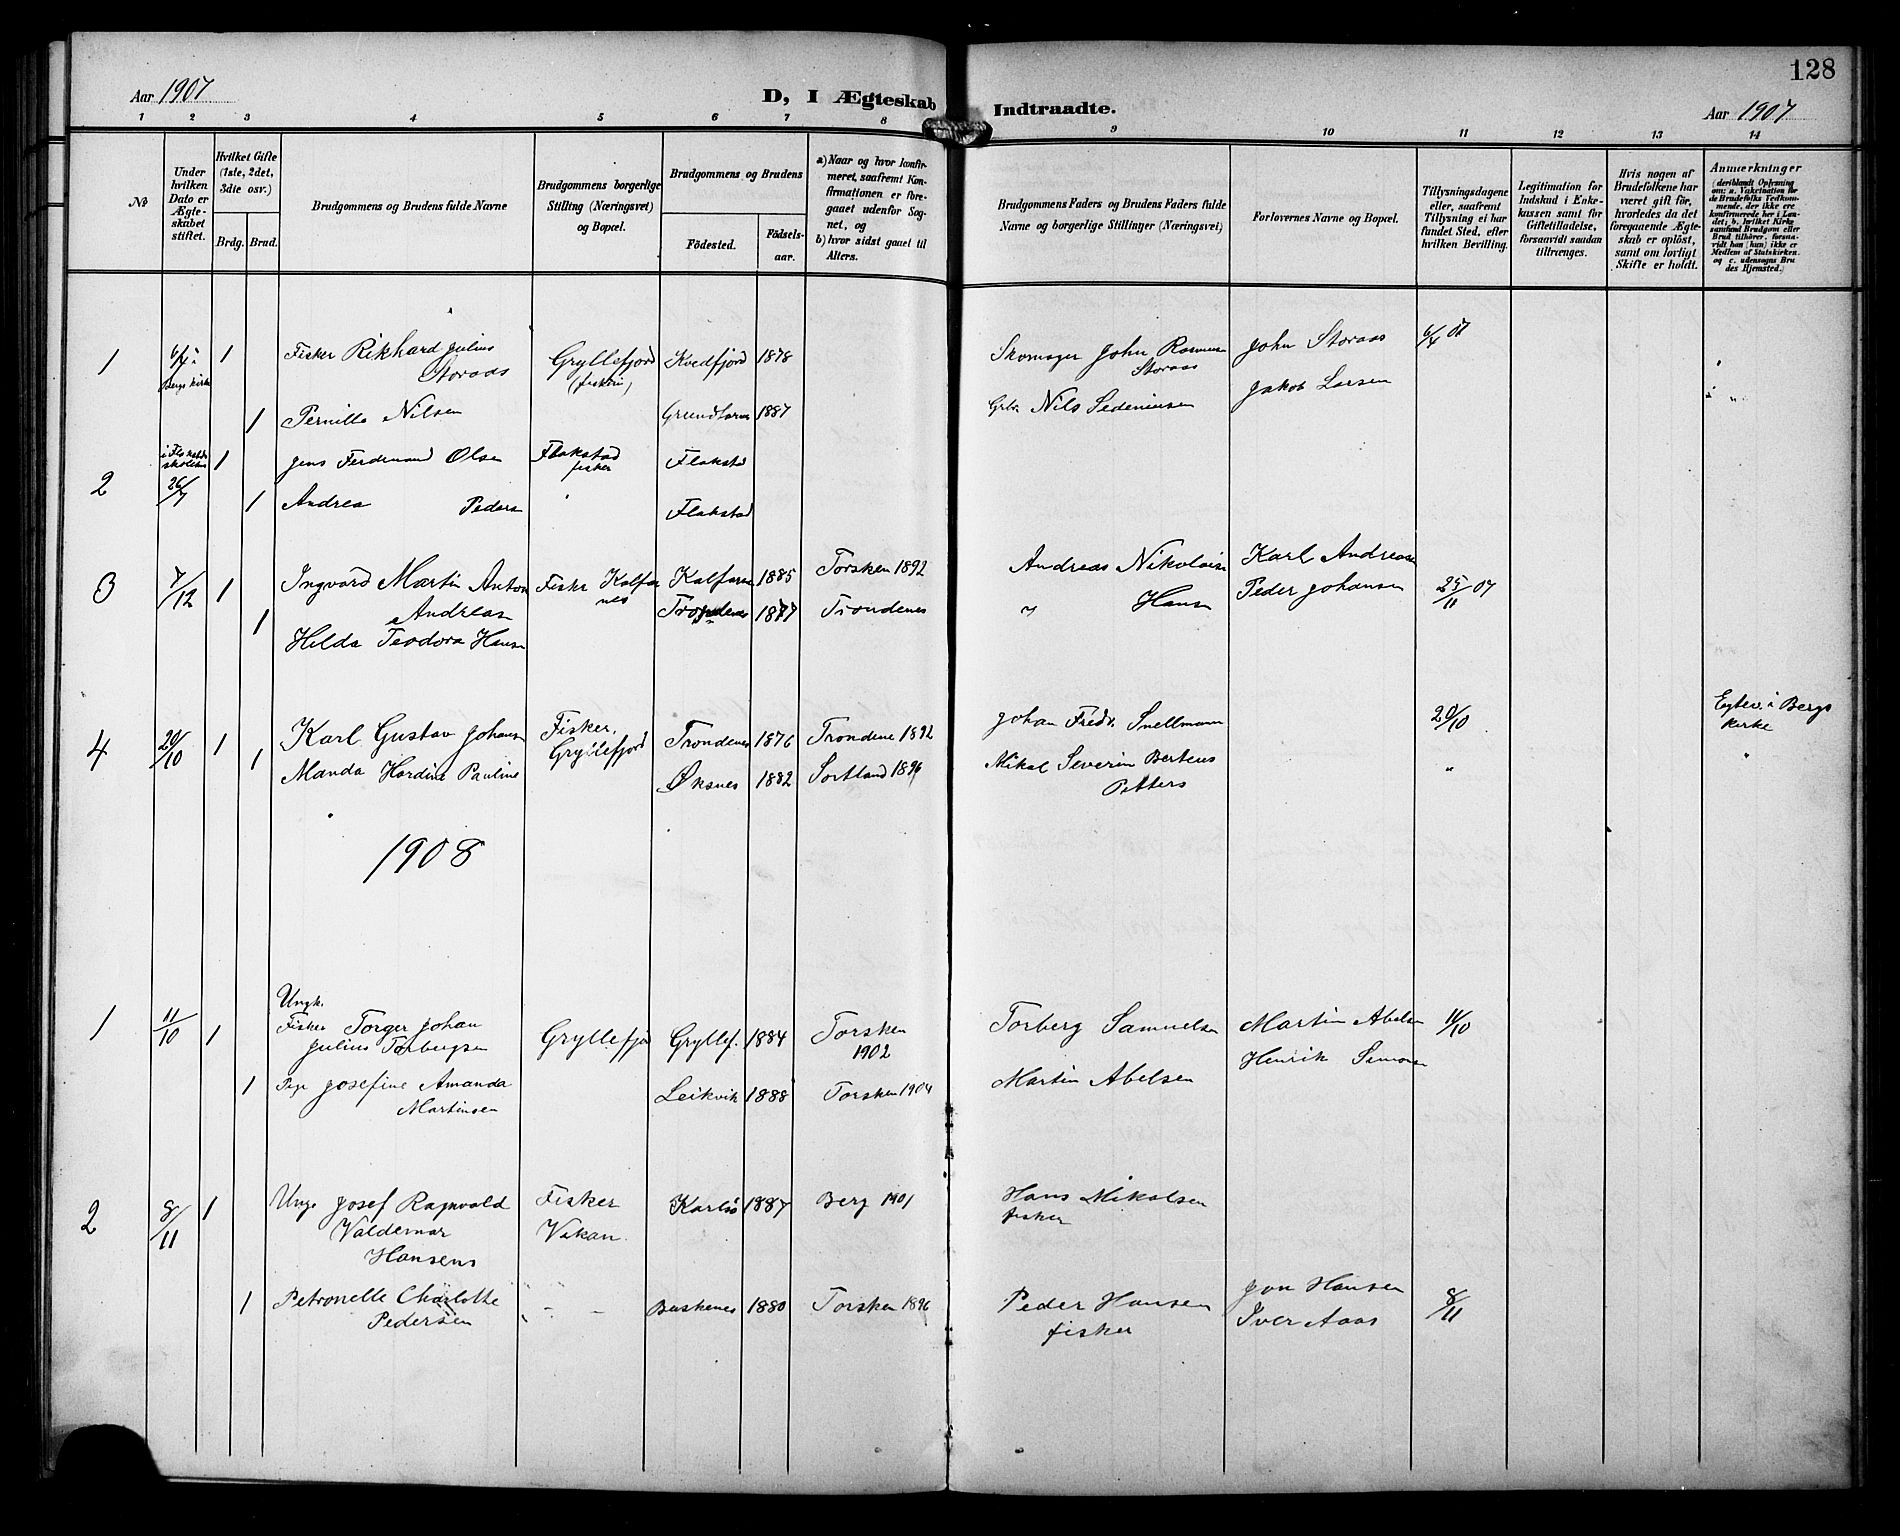 128
Aar 1907
D, I Ægteskab Indtraadte.
Aar 1907
1 2 3 4 5 6 7 8 9 10 11 12 13 14
No
Under hvilken Dato er Ægteskabet stiftet.
Hvilket Gifte (1ste, 2det, 3die osv.)
Brdg. Brud.
Brudgommens og Brudens fulde Navne
Brudgommens borgerlige Stilling (Næringsvei) og Bopæl.
Brudgommens og Brudens
Födested.
Födselsaar.
a) Naar og hvor konfirmeret, saafremt Konfirmationen er foregaaet udenfor Sognet, og
b) hvor sidst gaaet til Alters.
Brudgommens Faders og Brudens Faders fulde Navne og borgerlige Stillinger (Næringsvei)
Forlovernes Navne og Bopæl.
Tillysningsdagene eller, saafremt Tillysning ei har fundet Sted, efter hvilken Bevilling.
Legitimation for Indskud i Enkekassen samt for Giftetilladelse, forsaavidt saadan tiltrænges.
Hvis nogen af Brudefolkene har været gift för, hvorledes da det foregaaende Ægteskab er oplöst, samt om lovligt Skifte er holdt.
Anmærkninger
(deriblandt Oplysning om: a. Vakcination for de Brudefolks Vedkommende, der ikke ere konfirmerede her i Landet; b. hvilket Kirkesamfund Brudgom eller Brud tilhörer, forsaavidt han (hun) ikke er Medlem af Statskirken, og c. udensogns Brudes Hjemsted.)
1 Bergs kirke 1 Fisker Rikhard Julius Gryllefjord Kvedfjord 1878 Skomager John Rasmusen John Storaas 6/4 07
Storaas (fiskeri) Storaas
1 Pernille Nilsen 1887 Nils Sedeniusen Jakob Larsen
2 26/7 1 Jens Ferdinand Olsen Flakstad Flakstad
fisker
1 Andrea Peders Flakstad
3 7/12 1 Ingvard Martin Anton Fisker Kalfarnes Kalfarnes 1885 Torsken 1892 Andreas Nikolaisen Karl Andreasen
Andreasen 25/11 07
1 Hilda Teodora Hansen Trondenes 1877 Trondenes " Hansen Peder Johansen
4 20/10 1 Karl Gustav Johansen Fisker, Trondenes 1876 Trondene 1892 Johan Fredr. Snellmann 20/10 Egtev. i Bergs
Gryllefjord kirke
1 Manda Hardine Pauline Øksnes 1882 Sortland 1896 Mikal Severin Bertens " "
Petters
1908
Ungk.
1 11/10 1 Fisker Torger Johan Gryllefjo Gryllef. 1884 Torsken Torberg Samuelsen Martin Abelsen 11/10
Julius Torbergsen 1902
1 Pige Josefine Amanda Leikvik 1888 Torsken 1904 Martin Abelsen Henrik Simonsen
Martinsen
2 8/11 1 Ungk Josef Ragnvald Fisker Karlsö 1887 Berg 1901 Hans Mikalsen
Valdemar Vakan. fisker
Hansens
1 Petronelle Charlotte " - - Buskenes 1880 Torsken 1896 Peder Hansen Jon Hansen 8/11
Pedersen fisker Iver Aaas